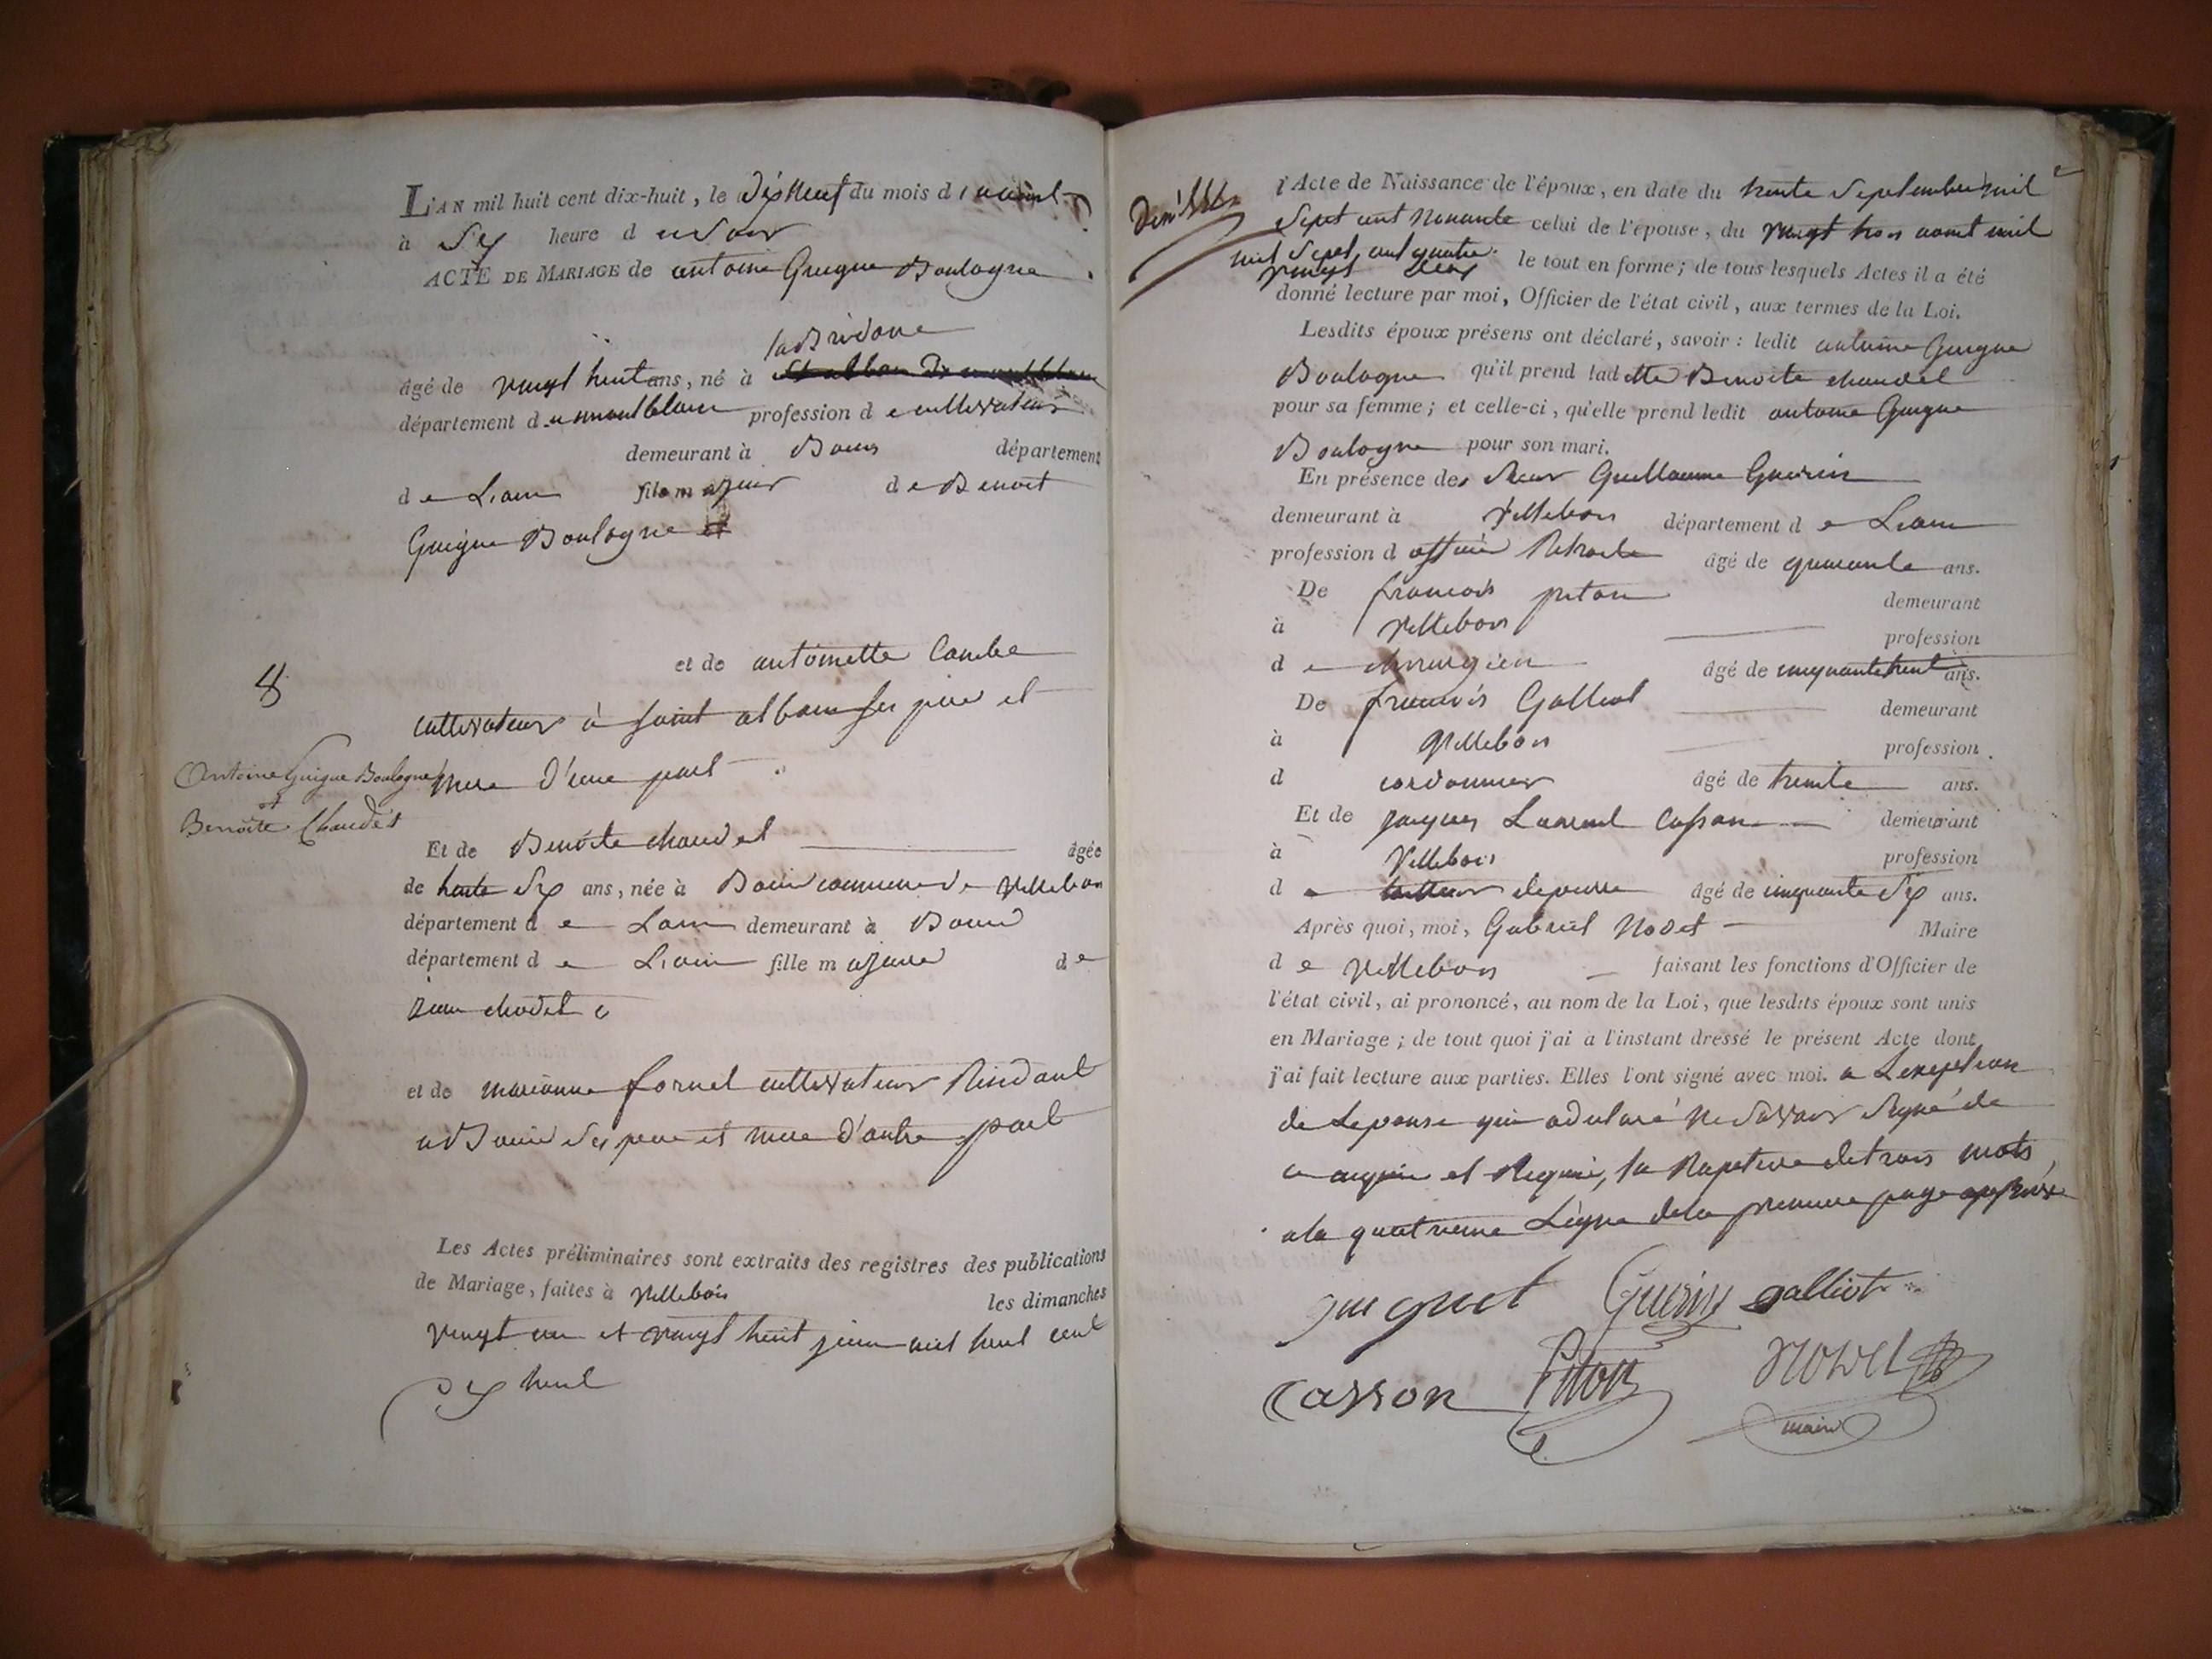 L'AN mil huit cent dix-huit, le dix Neuf du mois d
à Six heure d u Soir
ACTE DE MARIAGE de antoine Guigue Boulogne
la Bridoire
âgé de vingt huit ans, né à
département d u montblanc profession d e cultivateur
demeurant à Bouis département
d e Lain fils majeur d e Benoit
Guigue Boulogne et
et de antoinette Combe
8
cultivateur à saint alban ses pere et
Antoine Guigue Boulogne
mere d'une part
et
Benoite Chaudet
Et de Benoite chaudet âgée
de trente Six ans, née à Bouis commune de Villebois
département d e Lain demeurant à Bouis
département d e Lain fille majeure d e
jean chodet
et de marianne fornet cultivateur Residant
a Bouis Ses pere et mere d'autre part
Les Actes préliminaires sont extraits des registres des publications
de Mariage, faites à Villebois les dimanches
vingt un et vingt huit juin mil huit cent
dix huit
l'Acte de Naissance de l'époux, en date du trente Septembre mil
Sept cent Nonante celui de l'épouse, du vingt trois aout mil
mil Sept cent quatre
vingt deux le tout en forme; de tous lesquels Actes il a été
donné lecture par moi, Officier de l'état civil, aux termes de la Loi.
Lesdits époux présens ont déclaré, savoir : ledit antoine Guigue
Boulogne qu'il prend ladette Benoite chaudet
pour sa femme; et celle-ci, qu'elle prend ledit antoine Guigue
Boulogne pour son mari.
En présence de Sieur Guillaume Guerin
demeurant à Villebois département d e Lain
profession d officié Retraite âgé de quarante ans.
De francois piton demeurant
à Villebois profession
d e chirurgien âgé de cinquante huit ans.
De francois Galliot demeurant
à Villebois profession
d cordonnier âgé de trente ans.
Et de jacques Laurent Casson demeurant
à Villebois profession
d e tailleur depierre âgé de cinquante Six ans.
Après quoi, moi, Gabriel Nodet Maire
d e Villebois faisant les fonctions d'Officier de
l'état civil, ai prononcé, au nom de la Loi, que lesdits époux sont unis
en Mariage ; de tout quoi j'ai à l'instant dressé le présent Acte dont
j'ai fait lecture aux parties. Elles l'ont signé avec moi. a Lexeption
de Lepouse qui a declaré Ne Savoir Signé de
ce enquise et Requise, la Rapeture de trois mots
a la quatrieme Ligne de la premiere page approuvé
guiguet Guerin galliot
Casson Piton Nodet
maire